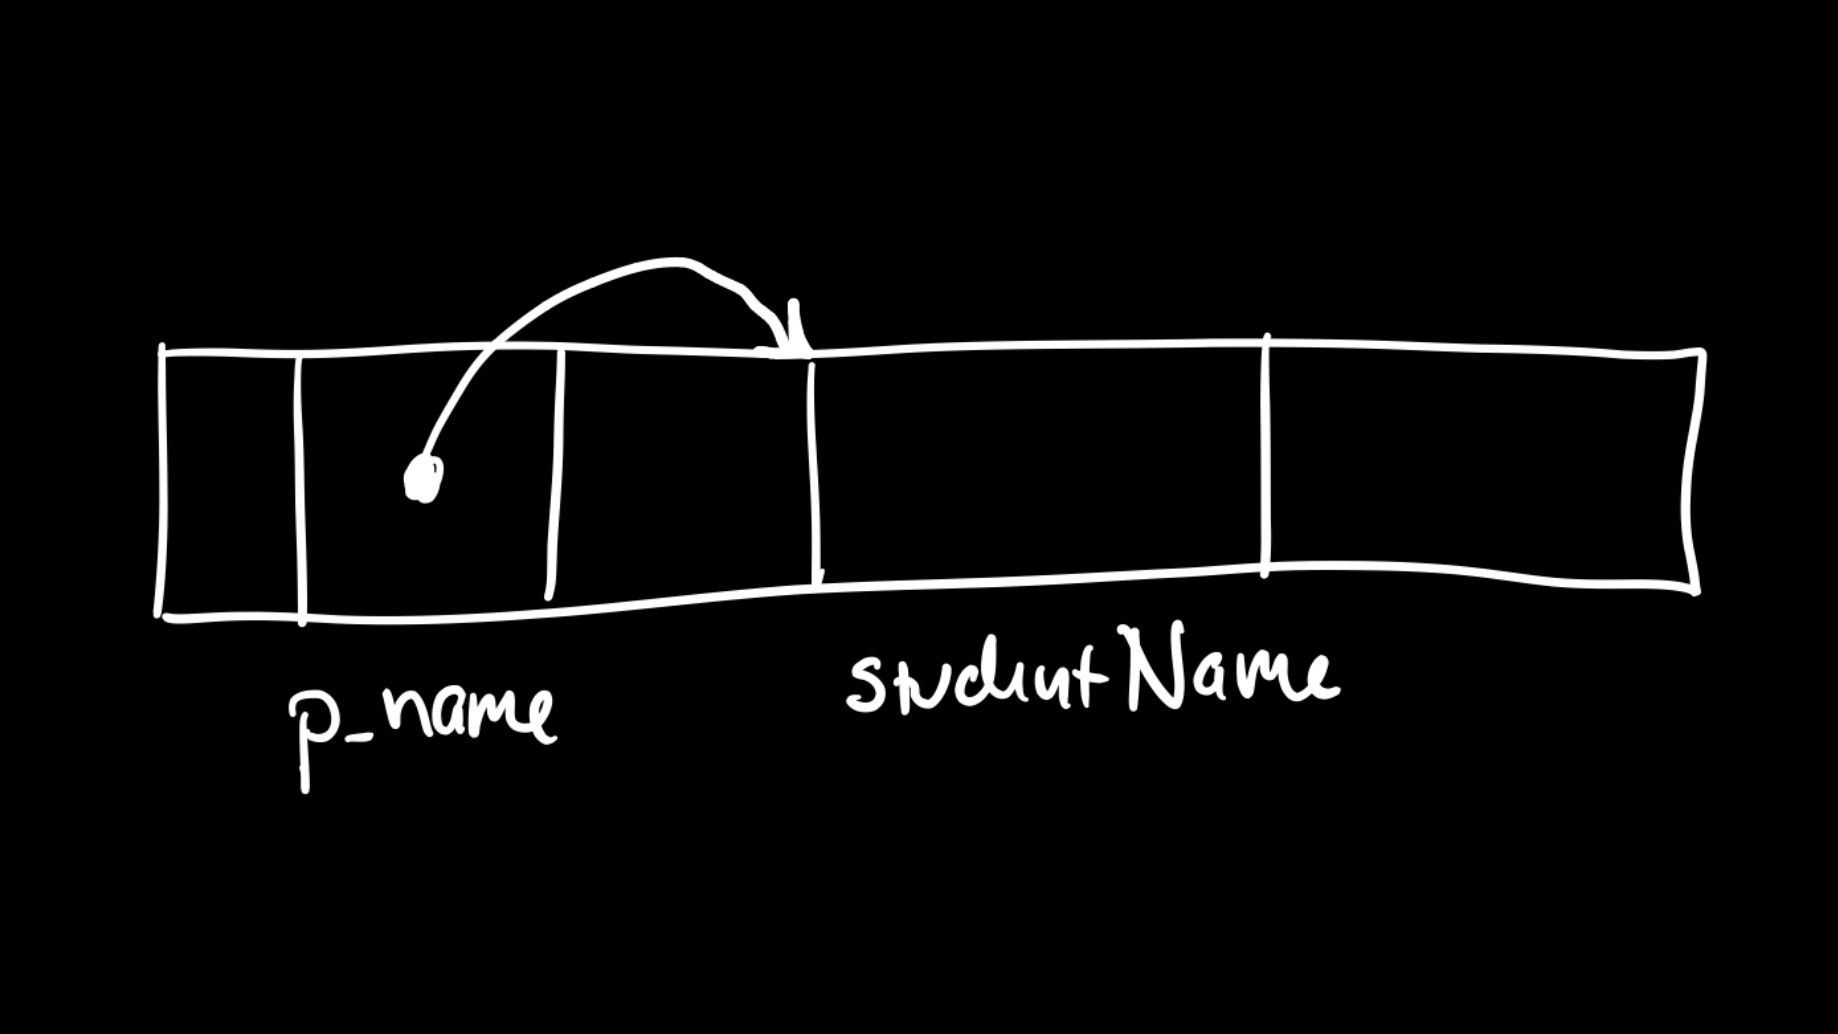 p_name
studentName